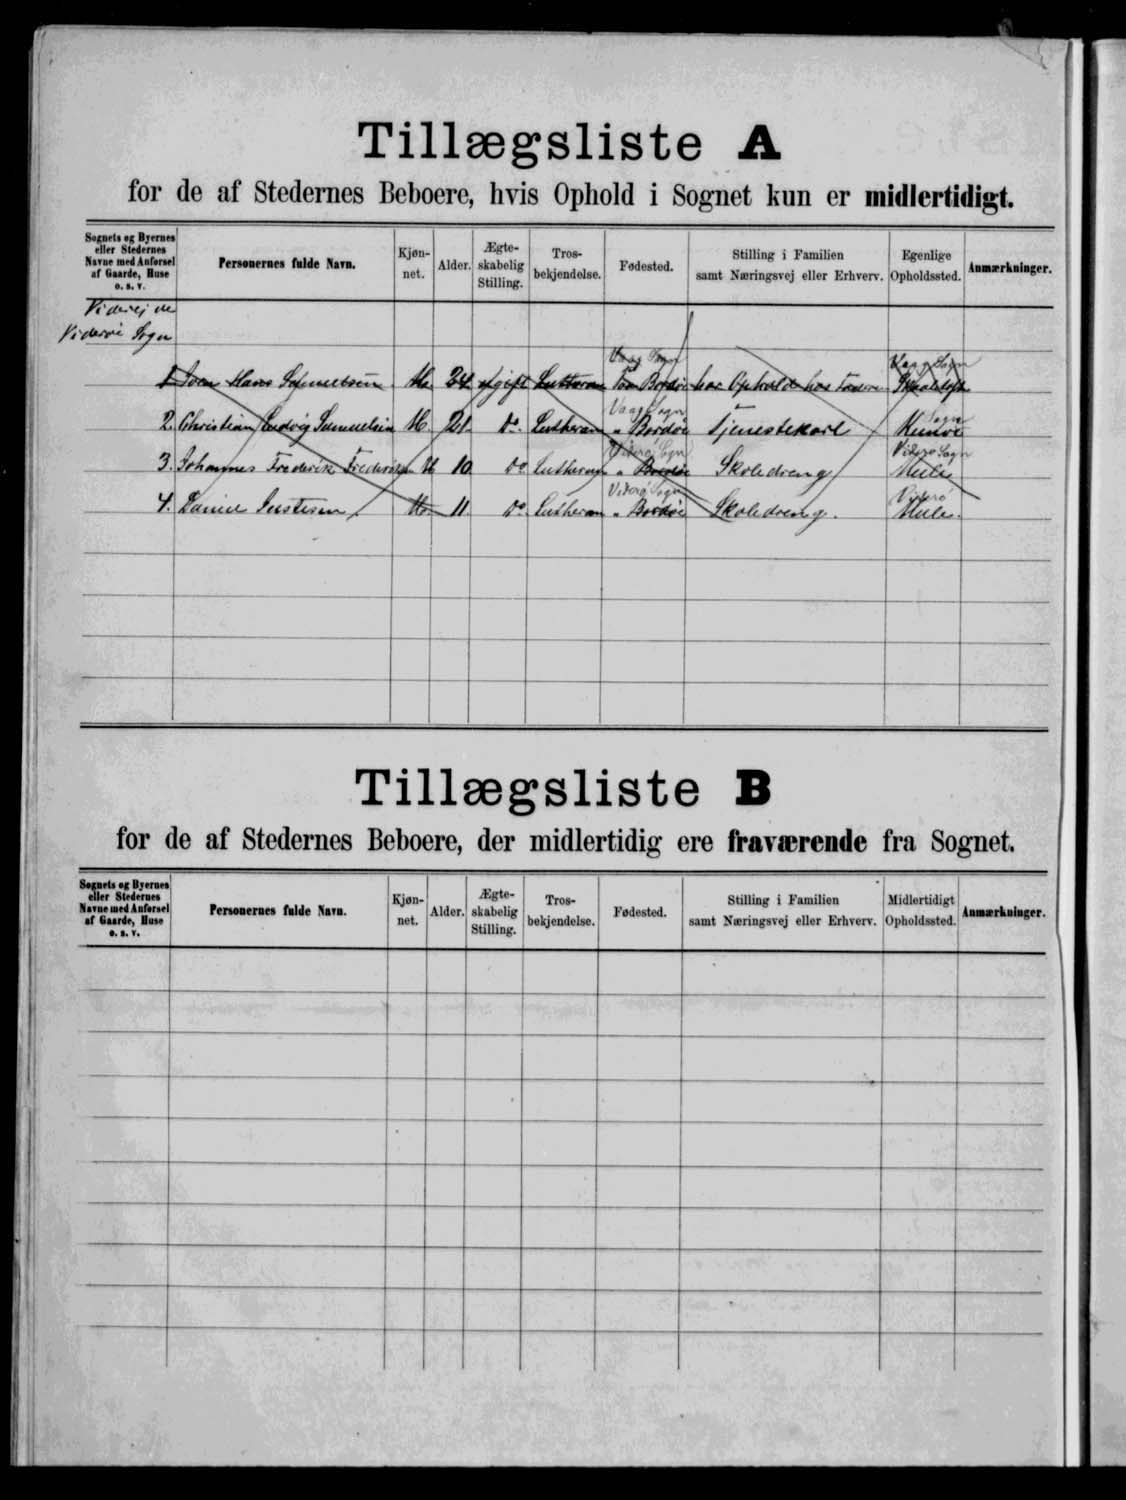 Tillægsliste A
for de af Stedernes Beboere, hvis Ophold i Sognet kun er midlertidigt.
Sognets og Byernes eller Stedernes Navne med Anførsel af Gaarde, Huse o. s. v.
Personernes fulde Navn.
Kjøn-net.
Alder.
Ægte-skabelig Stilling.
Tros-bekjendelse.
Fødested.
Stilling i Familien samt Næringsvej eller Erhverv.
Egenlige Opholdssted.
Anmærkninger.
Viderejde
Viderøi Sogn
Vaag Sogn Vaag Sogn
1. Hans Samuelsen M. 24 ugift Lutheran Bordøi har Ophold hos
Vaag Sogn Sogn
2. Christian Ludvig Samuelsen M. 21. Do. Lutheran " Bordøi Tjenestekarl Kunøi
Viderø Sogn Viderø Sogn
3. Johannes Frederik Frederiksen M 10. Do Lutheran " Bordøi Skoledreng Mule
Viderø Sogn Viderø
4. Daniel Justesen M. 11. Do. Lutheran " Bordøi Skoledreng. Mule.
Tillægsliste B
for de af Stedernes Beboere, der midlertidig ere fraværende fra Sognet.
Sognets og Byernes eller Stedernes Navne med Anførsel af Gaarde, Huse o. s. v.
Personernes fulde Navn.
Kjøn-net.
Alder.
Ægte-skabelig Stilling.
Tros-bekjendelse.
Fødested.
Stilling i Familien samt Næringsvej eller Erhverv.
Midlertidigt Opholdssted.
Anmærkninger.